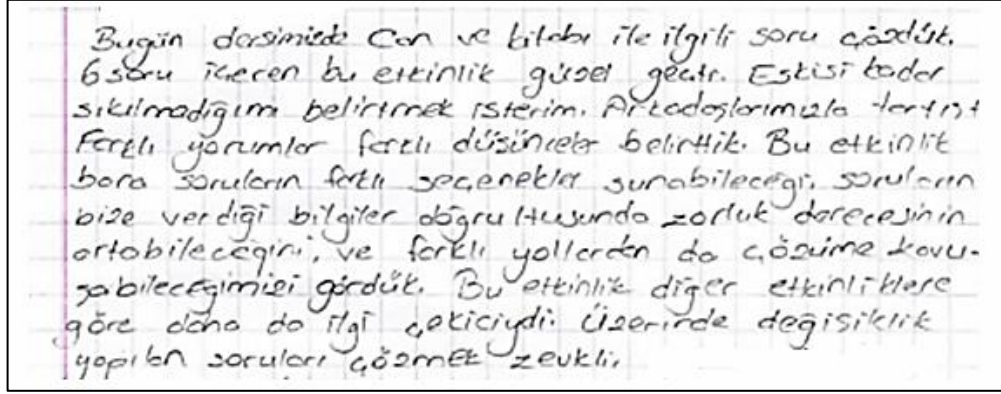 Bugün dersimizde Can ve kitabı ile ilgili soru çözdük.
6 soru içeren bu etkinlik güzel geçti. Eskisi kadar
sıkılmadığımı belirtmek isterim. Arkadaşlarımızla tartışt
Farklı yorumlar farklı düşünceler belirttik. Bu etkinlik
bana soruların farklı seçenekler sunabileceği, soruların
bize verdiği bilgiler doğrultusunda zorluk derecesinin
artabileceğini, ve farklı yollardan da çözüme kavu-
şabileceğimizi gördük. Bu etkinlik diğer etkinliklere
göre daha da ilgi çekiciydi. Üzerinde değişiklik
yapılan soruları çözmek zevkli.